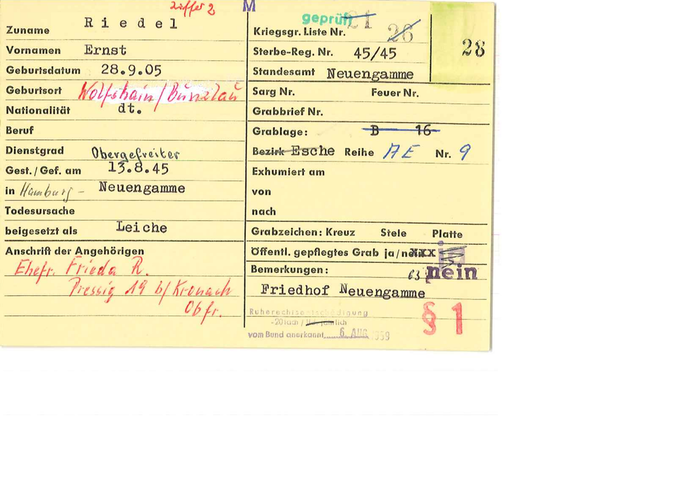 Ziffer 2
M
Zuname Riedel
Vornamen Ernst
Geburtsdatum 28.9.05
Geburtsort Wolfshain/Bunzlau
Nationalität dt.
Beruf
Dienstgrad Obergefreiter
Gest./Gef. am 13.8.45
in Hamburg - Neuengamme
Todesursache
beigesetzt als Leiche
Anschrift der Angehörigen
Ehefr. Frieda R.
Pressig 19 b/Kronach
Obfr.
geprüft
Kriegsgr. Liste Nr. 21 26
28
Sterbe-Reg. Nr. 45/45
Standesamt Neuengamme
Sarg Nr. Feuer Nr.
Grabbrief Nr.
Grablage: B 16
Bezirk Esche Reihe AE Nr. 9
Exhumiert am
von
nach
Grabzeichen: Kreuz Stele Platte
Öffentl. gepflegtes Grab ja/nein xxx
Bemerkungen: nein
Friedhof Neuengamme
§ 1
Ruherechtsentschädigung
vom Bund anerkannt 6. AUG.